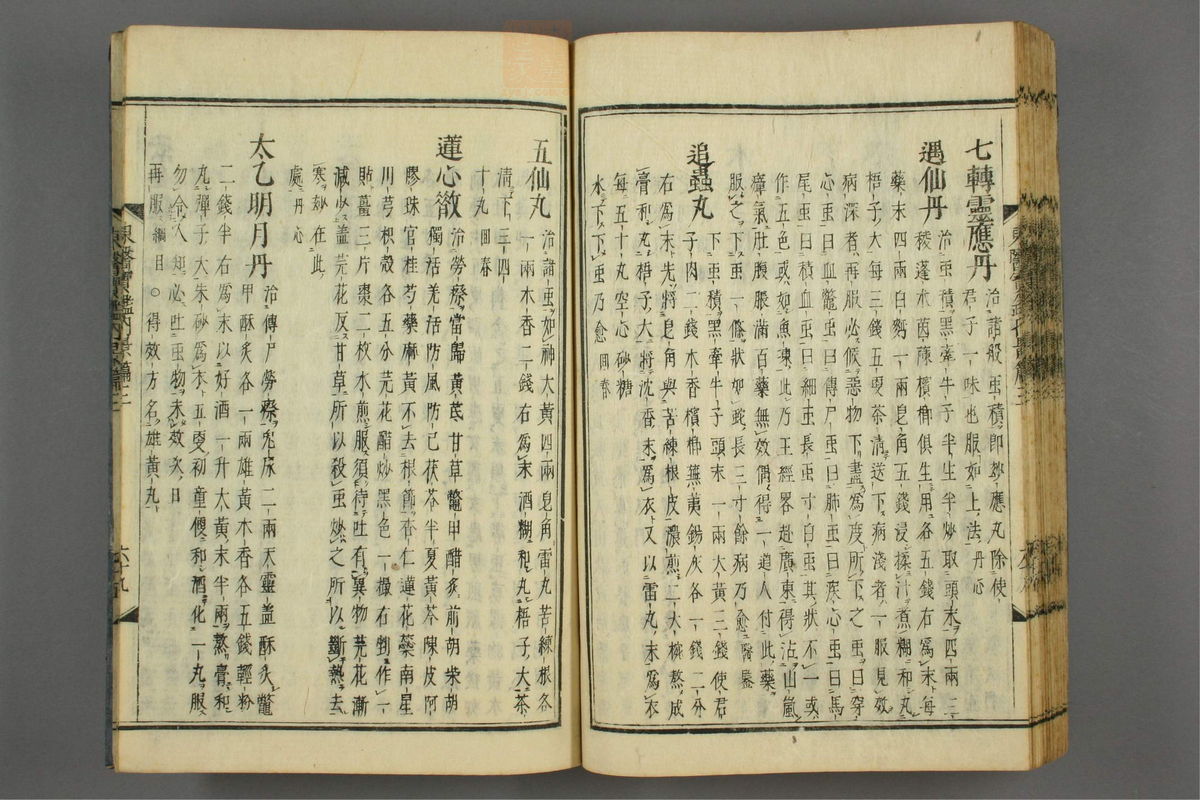 七轉靈應丹 治諸般虫積卽妙應丸除使
君子一味也服如上法丹心
遇仙丹 治虫積黑牽牛子半生半炒取頭末四兩三
稜蓬朮茵蔯檳榔俱生用各五錢右爲末每
藥末四兩白麪一兩皂角五錢浸揉汁煮糊和丸
梧子大每三錢五更茶淸送下病淺者一服見效
病深者再服必候惡物下盡爲度所下之虫曰穿
心虫曰血鱉虫曰傳尸虫曰肺虫曰疾心虫曰馬
尾虫曰積血虫曰細虫長虫寸白虫其狀不一或
作五色或如魚凍此乃王經畧赴廣東得沾山嵐
瘴氣肚腹脹滿百藥無效偶得一道人付此藥
服之下虫一條狀如蛇長三寸餘病乃愈醫鑑
追蟲丸 下虫積黑牽牛子頭末一兩大黃三錢使君
子肉二錢木香檳榔蕪荑錫灰各一錢二分
右爲末先將皂角與苦練根皮濃煎二大椀熬成
膏和丸梧子大將沈香末爲衣又以雷丸末爲衣
每五十丸空心砂糖
水下下虫乃愈回春
五仙丸 治諸虫如神大黃四兩皂角雷丸苦練根各
一兩木香二錢右爲末酒糊和丸梧子大茶
淸下三四
十丸回春
蓮心散 治勞瘵當歸黃芪甘草鱉甲醋灸前胡柴胡
獨活羌活防風防己茯苓半夏黃芩陳皮阿
膠珠官桂芍藥麻黃不去根節杏仁蓮花蘂南星
川芎枳殼各五分芫花醋炒黑色一撮右剉作一
貼薑三片棗二枚水煎服須待吐有異物芫花漸
減少盖芫花反甘草所以殺虫妙之所以斷熱去
寒妙在此
處丹心
太乙明月丹 治傳尸勞瘵兎屎二兩天靈盖酥灸鱉
甲酥灸各一兩雄黃木香各五錢輕粉
二錢半右爲末以好酒一升大黃末半兩熬膏和
丸彈子大朱砂爲衣五更初童便和酒化一丸服
勿令人知必吐虫物未效次日
再服綱目○得效方名雄黃丸
東醫寶鑑內景篇三